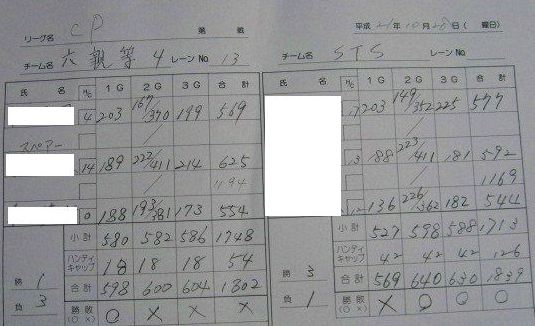 リーグ名 CP 第 戦
チーム名 六親等4 レーンNo. 13
氏 名 H/C 1G 2G 3G 合計
4 203 167/370 199 569
スペアー
14 189 222/411 214 625
1194
0 188 193/381 173 554
小計 580 582 586 1748
ハンディキャップ 18 18 18 54
勝 1
合計 598 600 604 1802
負 3
勝敗(○ ×) ○ × × ×
平成 21年10月28日( 曜日)
チーム名 STS レーンNo.
氏 名 H/C 1G 2G 3G 合計
203 149/352 225 577
188 223/411 181 592
1169
136 226/362 182 544
小計 527 598 588 1713
ハンディキャップ 42 42 42 126
勝 3
合計 569 640 630 1839
負 1
勝敗(○ ×) × ○ ○ ○